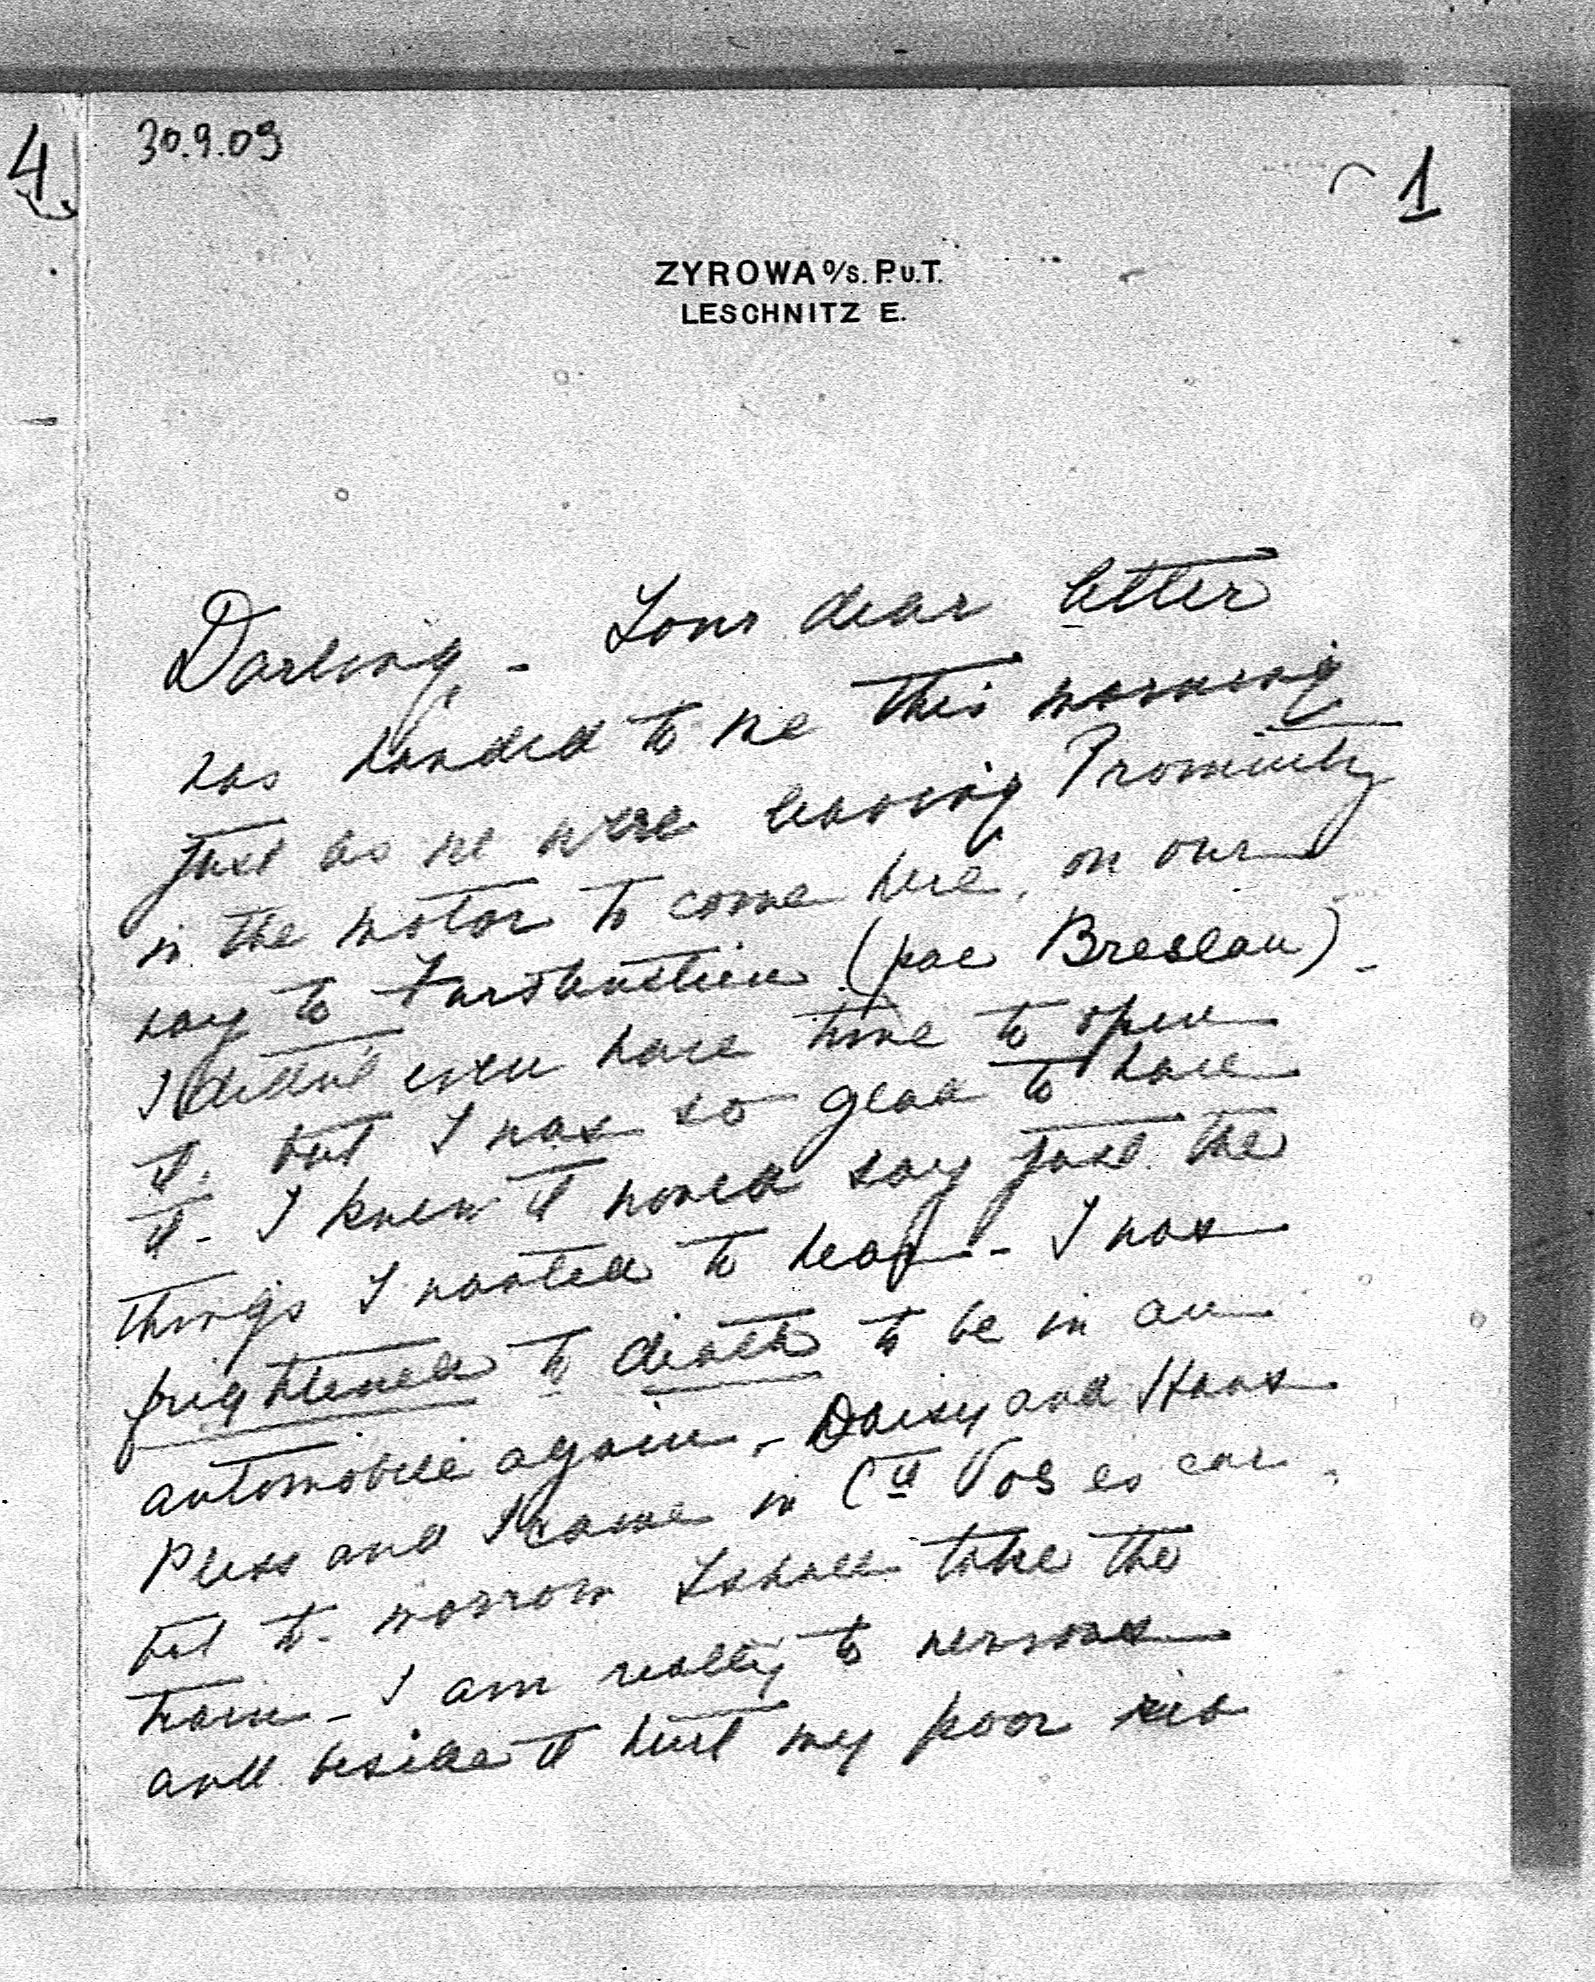 4.
30.9.09
1
ZYROWA O/S. P.U.T.
LESCHNITZ E.
Darling, - Your dear letter
was handed to me this morning
just as we were leaving Promnitz
in the motor to come here, on our
way to Furstenstein (par Breslau) -
I didn't even have time to open
it, but I was so glad to have
it - I knew it would say just the
things I wanted to hear - I was
frightened to death to be in an
automobile again - Daisy and Hans
Pless and I came in Cte car,
but to-morrow I shall take the
train - I am really to nervous
and beside it hurt my poor rib